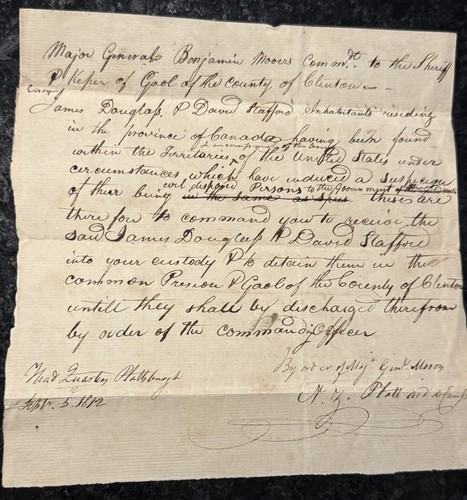 Major General Benjamin Mooers Commdt to the Sheriff
& Keper of Gaol of the county of Clinton
James Douglass & David Stafford Inhabitants residing
in the province of Canada having been found
within the Territories of the United States under
circumstances which have induced a suspicion
of their being evil disposed Persons to the Government in the same as spies these are
there fore to command you to receive the
said James Douglass & David Stafford
into your custody & to detain them in the
common Preson & Gaol of the County of Clenton
untill they shall by discharged therefrom
by order of the commanding officer
By order of Majr Genl Mooers
Head Quarters Plattsburgh
Septr. 5. 1812
N. Z. Platt aid de camp